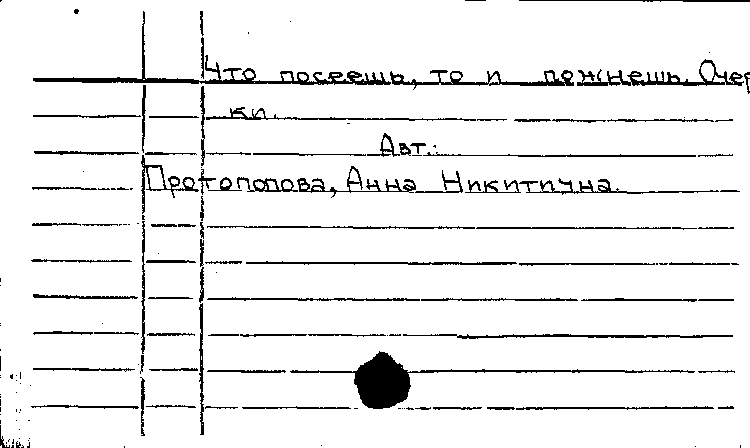 Что посеешь, то и пожнешь. Очер
ки.
Авт.:
Протопопова, Анна Никитична.